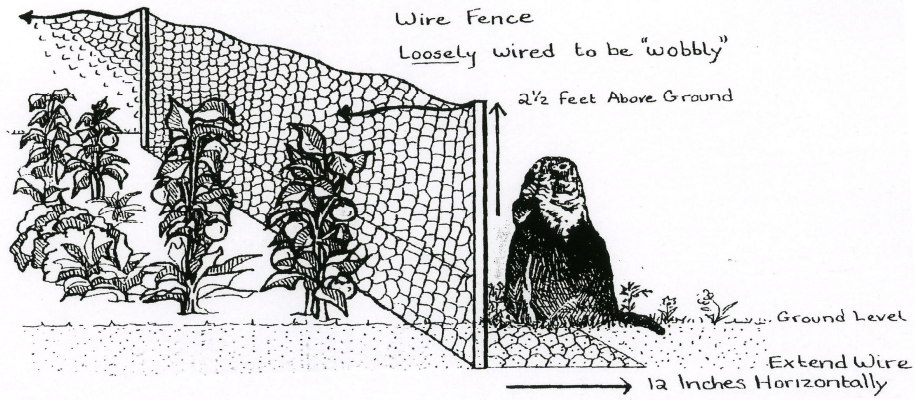 Wire Fence
Loosely wired to be "wobbly"
2½ Feet Above Ground
Ground Level
Extend Wire
12 Inches Horizontally